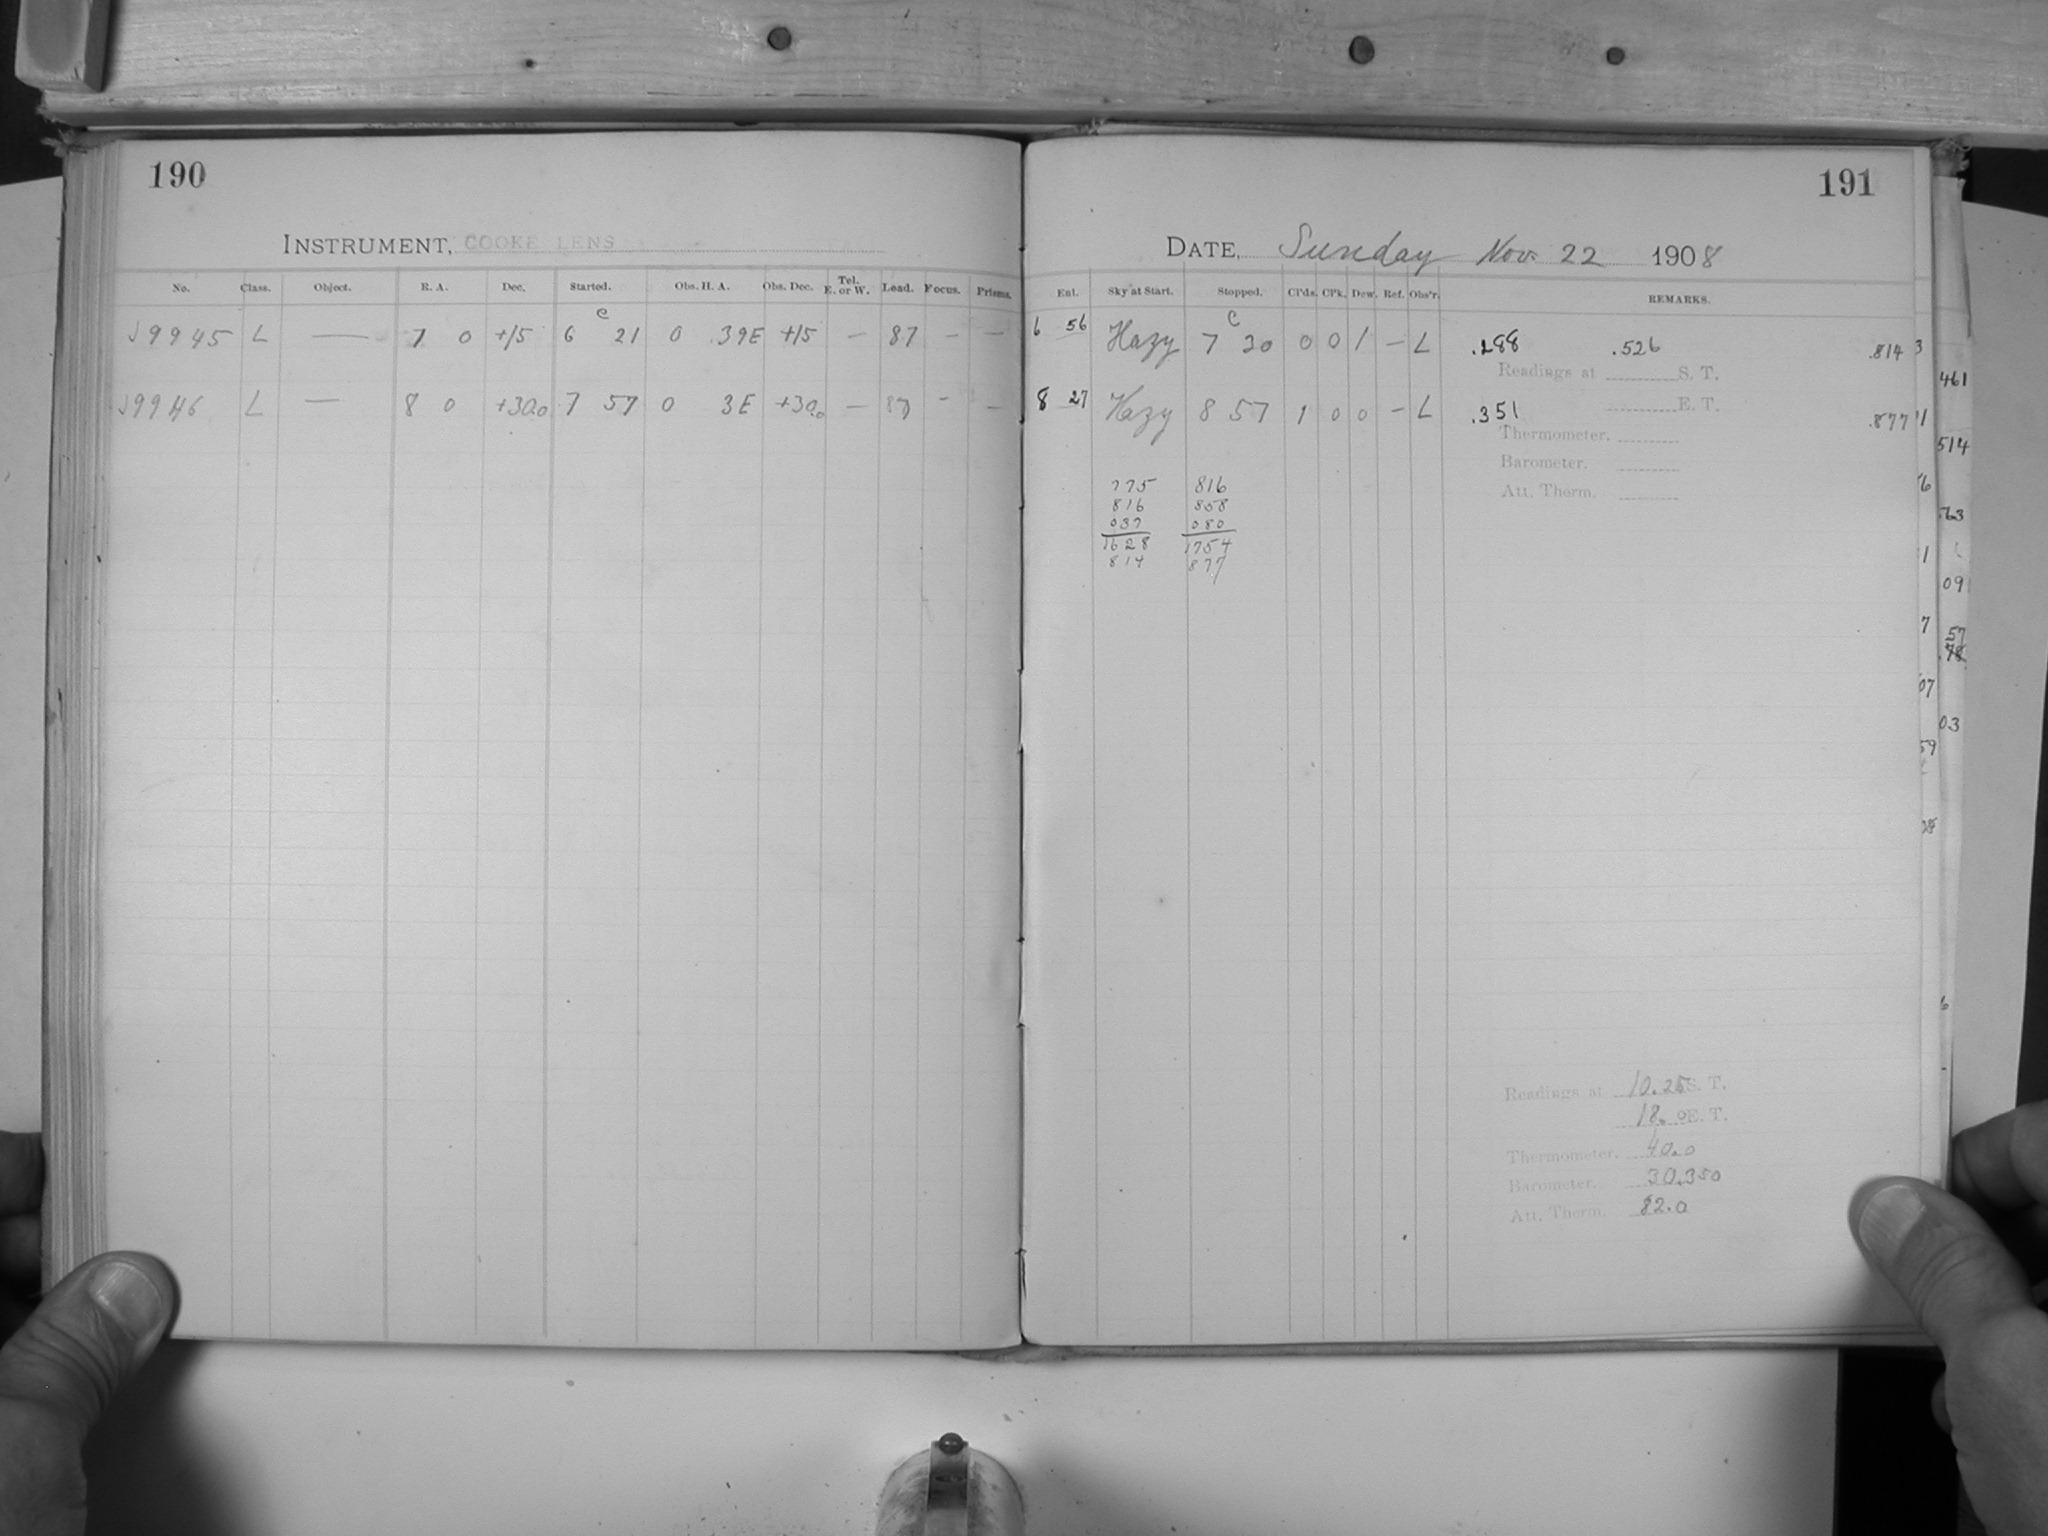 190
INSTRUMENT, COOKE LENS
No. Class. Object. R. A. Dec. Started. Obs. H. A. Obs. Dec. Tel. E. or W. Load. Focus. Prisms.
J9945 L — 7 0 +15 6 21 0 39E +15 — 87 — —
J9946 L — 8 0 +30.0 7 57 0 3E +30.0 — 87 - —
191
DATE, Sunday Nov. 22 1908
Ent. Sky at Start. Stopped. Cl'ds. Cl'k. Dew. Ref. Obs'r. REMARKS.
6 56 Hazy 7 20 0 0 1 — L .288 .526 .814
Readings at S. T.
8 27 Hazy 8 57 1 0 0 — L .351 .877
E. T.
Thermometer.
Barometer.
Att. Therm.
775 816
816 858
037 080
1628 1754
814 877
Readings at 10.25 S. T.
18.0 E. T.
Thermometer. 40.0
Barometer. 30.350
Att. Therm. 82.0
461
514
63
09
57
03